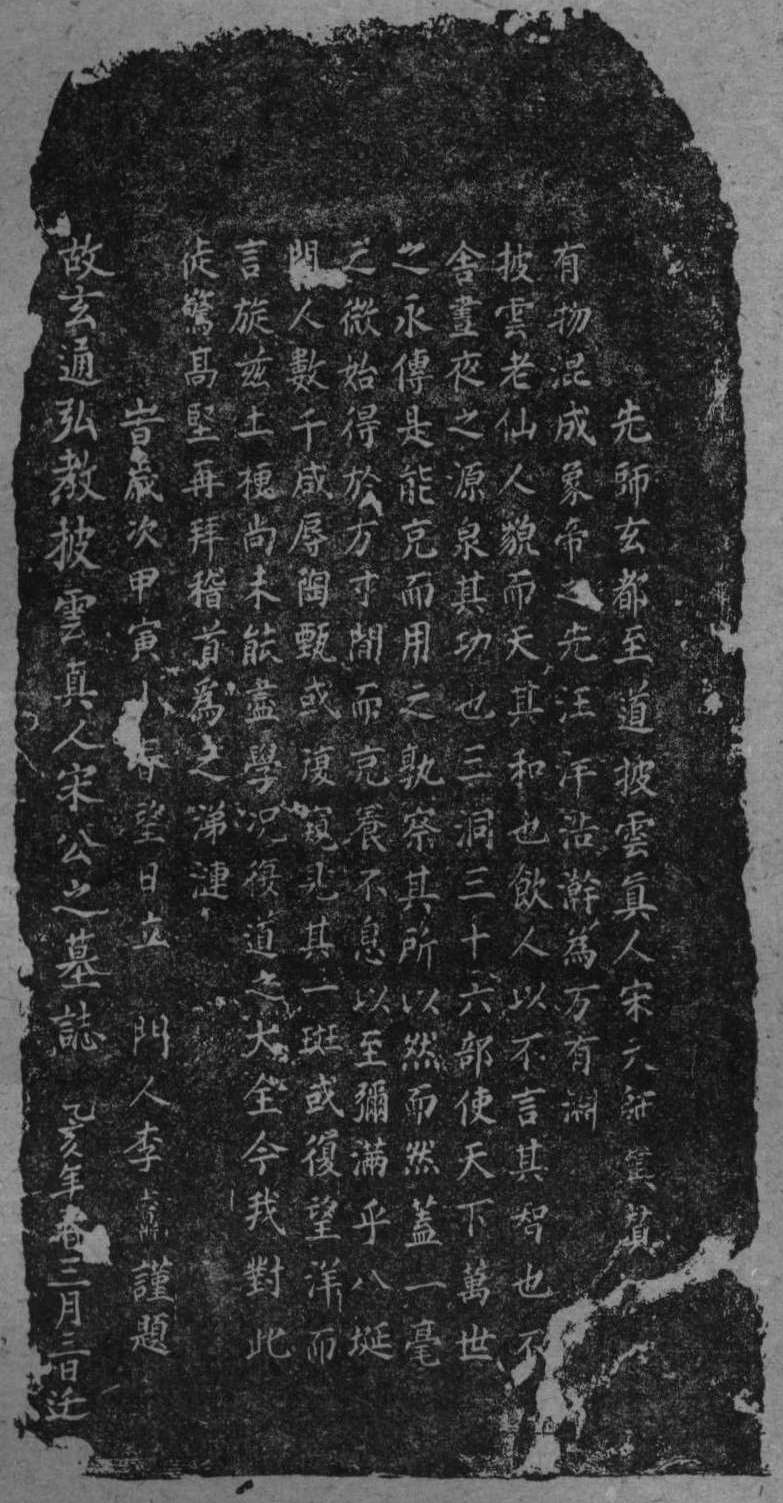 先師玄都至道披雲真人宋天師真贊
有物混成象帝之先汪洋浩瀚為万有淵
披雲老仙人貌而天其和也飲人以不言其智也不
舍晝夜之源泉其功也三洞三十六部使天下萬世
之永傳是能克而用之孰察其所以然而然蓋一毫
之微始得於方寸間而克養不息以至彌滿乎八埏
門人數千咸辱陶甄或復窺見其一斑或復望洋而
言旋茲土梗尚未能盡學況復道之大全今我對此
徒驚高堅再拜稽首為之涕漣
旹歲次甲寅小春望日立 門人李 謹題
故玄通弘教披雲真人宋公之墓誌 乙亥年春三月三日迁